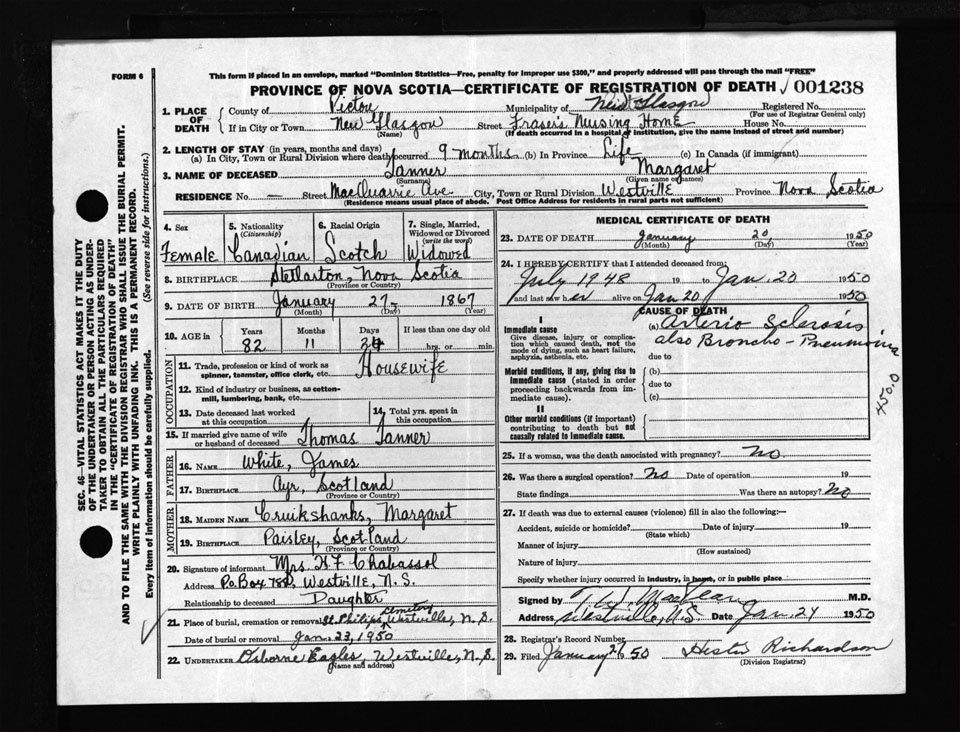 FORM 6
This form if placed in an envelope, marked "Dominion Statistics—Free, penalty for improper use $300," and properly addressed will pass through the mail "FREE"
PROVINCE OF NOVA SCOTIA—CERTIFICATE OF REGISTRATION OF DEATH 001238
1. PLACE OF DEATH
County of Pictou Municipality of New Glasgow Registered No.
(For use of Registrar General only)
If in City or Town New Glasgow Street Fraser's Nursing Home House No.
(Name) (If death occurred in a hospital or institution, give the name instead of street and number)
2. LENGTH OF STAY (in years, months and days)
(a) In City, Town or Rural Division where death occurred 9 months (b) In Province Life (c) In Canada (if immigrant)
3. NAME OF DECEASED Tanner Margaret
(Surname) (Given name or names)
RESIDENCE No. — Street MacQuarrie Ave City, Town or Rural Division Westville Province Nova Scotia
(Residence means usual place of abode. Post Office Address for residents in rural parts not sufficient)
4. Sex Female
5. Nationality (Citizenship) Canadian
6. Racial Origin Scotch
7. Single, Married, Widowed or Divorced (write the word) Widowed
8. BIRTHPLACE Stellarton, Nova Scotia
(Province or Country)
9. DATE OF BIRTH January 27- 1867
(Month) (Day) (Year)
10. AGE in Years Months Days If less than one day old
82 11 24 hrs. or min.
OCCUPATION
11. Trade, profession or kind of work as spinner, teamster, office clerk, etc. Housewife
12. Kind of industry or business, as cotton-mill, lumbering, bank, etc.
13. Date deceased last worked at this occupation
14. Total yrs. spent in this occupation
15. If married give name of wife or husband of deceased Thomas Tanner
FATHER
16. NAME White, James
17. BIRTHPLACE Ayr, Scotland
(Province or Country)
MOTHER
18. MAIDEN NAME Cruikshanks, Margaret
19. BIRTHPLACE Paisley, Scotland
(Province or Country)
20. Signature of informant Mrs. H F Chabassol
Address P.O. Box 788, Westville, N.S.
Relationship to deceased Daughter
21. Place of burial, cremation or removal St. Philips Cemetery Westville, N.S.
Date of burial or removal Jan. 23, 1950
22. UNDERTAKER Osborne Eagles, Westville, N.S.
(Name and address)
MEDICAL CERTIFICATE OF DEATH
23. DATE OF DEATH January 20, 1950
(Month) (Day) (Year)
24. I HEREBY CERTIFY that I attended deceased from:
July 1948 19 to Jan. 20 1950
and last saw her alive on Jan 20 1950
CAUSE OF DEATH
I
Immediate cause
Give disease, injury or complication which caused death, not the mode of dying, such as heart failure, asphyxia, asthenia, etc.
(a) Arterio Sclerosis
also Broncho-Pneumonia
due to
Morbid conditions, if any, giving rise to immediate cause (stated in order proceeding backwards from immediate cause).
(b)
due to
(c)
II
Other morbid conditions (if important) contributing to death but not causally related to immediate cause.
450.0
25. If a woman, was the death associated with pregnancy? No.
26. Was there a surgical operation? No Date of operation 19
State findings Was there an autopsy? No
27. If death was due to external causes (violence) fill in also the following:—
Accident, suicide or homicide? Date of injury 19
(State which)
Manner of injury
(How sustained)
Nature of injury
Specify whether injury occurred in industry, in home, or in public place
Signed by M.D.
Address Westville, N.S Date Jan. 24 1950
28. Registrar's Record Number
29. Filed January 27 1950 Hester Richardson
(Division Registrar)
SEC. 46—VITAL STATISTICS ACT MAKES IT THE DUTY
OF THE UNDERTAKER OR PERSON ACTING AS UNDERTAKER TO OBTAIN ALL THE PARTICULARS REQUIRED
IN THE "CERTIFICATE OF REGISTRATION OF DEATH"
AND TO FILE THE SAME WITH THE DIVISION REGISTRAR WHO SHALL ISSUE THE BURIAL PERMIT.
WRITE PLAINLY WITH UNFADING INK. THIS IS A PERMANENT RECORD.
Every item of information should be carefully supplied. (See reverse side for instructions.)